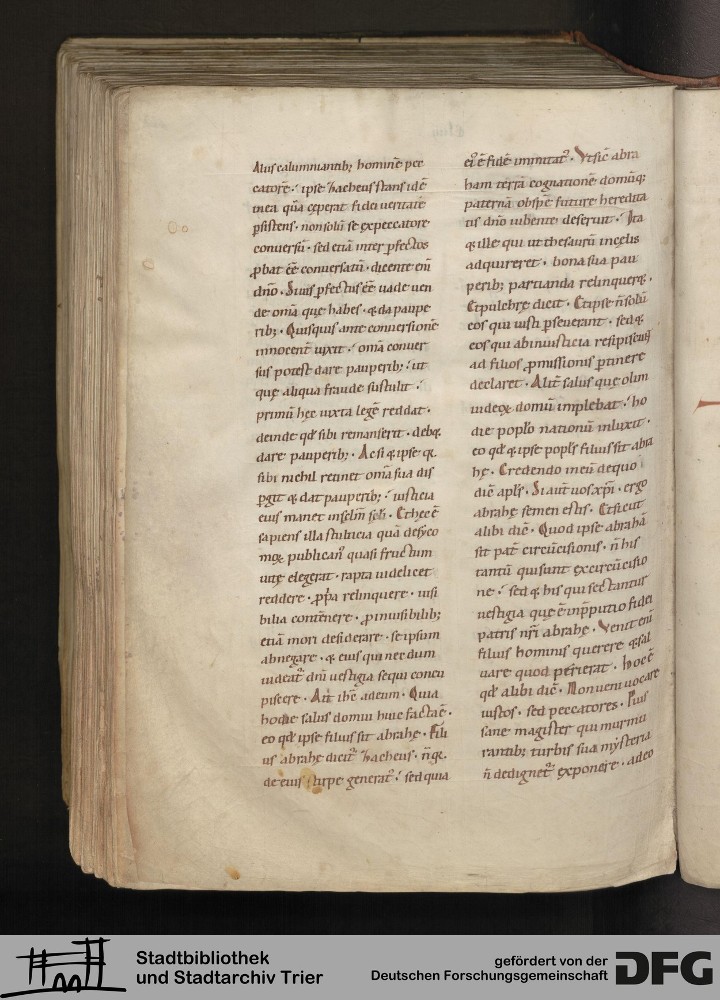 Aliis calumniantib; hominē pec
catorē· ipse Zacheus stans idē
in ea quā ceperat fidei veritate
ꝑsistens· non solū se ex peccatore
conversū· sed etiā inter ꝑfectos
ꝓbat eē conversatū· dicente enī
dn̄o· Si vis ꝑfectus eē vade ven
de om̄a que habes· & da paupe
rib;· Quisquis ante conversionē
innocent vixit· om̄a conver
sus potest dare paupērib;· ut
que aliqua fraude sustulit·
primū hec iuxta legē reddat·
deinde qd̄ sibi remanserit· deb&
dare pauperib;· Ac si q̨ ipse q̨
sibi nichil retinet om̄a sua dis
ꝑgit & dat pauperib;· iusticia
eius manet in sel̄m sel̄i· Et hec ē
sapiens illa stulticia quā de syco
moro publican᷒ quasi fructum
vite elegerat· rapta videlicet
reddere· ꝓpͥa relinquere· visi
bilia contēnere· ꝓ invisibilib;
etiā mori desiderare· se ipsum
abnegare· & eius qui nec dum
videat᷑ dn̄i vestigia sequi concu
piscere· Ait ih̄c ad eum· Quia
hodie salus domui huic facta ē·
eo qd̄ ipse filius sit abrahę· Fili
us abrahę dicit᷑ Zacheus· n̄ q̨
de eius stirpe generat᷒· sed quia
ei᷒ ē fidē imitat᷒· Ut sic̄ abra
ham terrā cognationē domūq;
paternā ob spē future heredita
tis dn̄o iubente deseruit· Ita
& ille qui ut thesaurū in celis
adquireret· bona sua pau
perib; partianda relinquer&·
Et pulchre dicit· Et ipse n̄ solū
eos qui iusti ꝑseverant· sed &
eos qui ab iniusticia resipiscunt
ad filios ꝓmissionis ꝑtinere
declaret· Alit̄ salus que olim
iudeoꝝ domū implebat· ho
die popl̄o nationū inluxit·
eo qd̄ & ipse popl̄s filius sit abra
hę· Credendo in eū de quo
dic̄ apl̄s· Si aut̄ vos xp̄i· ergo
abrahę semen estis· Et sicut
alibi dic̄· Quod ipse abrahā
sit pat̄ circūcisionis· n̄ his
tantū qui sunt ex circūcisio
ne· sed & his qui sectantur
vestigia que ē in p̄putio fidei
patris nr̄i abrahę· Venit enī
filius hominis querere & sal
vare quod perierat· Hoc ē
qd̄ alibi dic̄· Non veni vocare
iustos· sed peccatores· Pius
sane magister qui murmu
rantib; turbis sua mysteria
n̄ dedignet᷑ exponere· adeo
Stadtbibliothek
und Stadtarchiv Trier
gefördert von der
Deutschen Forschungsgemeinschaft
DFG